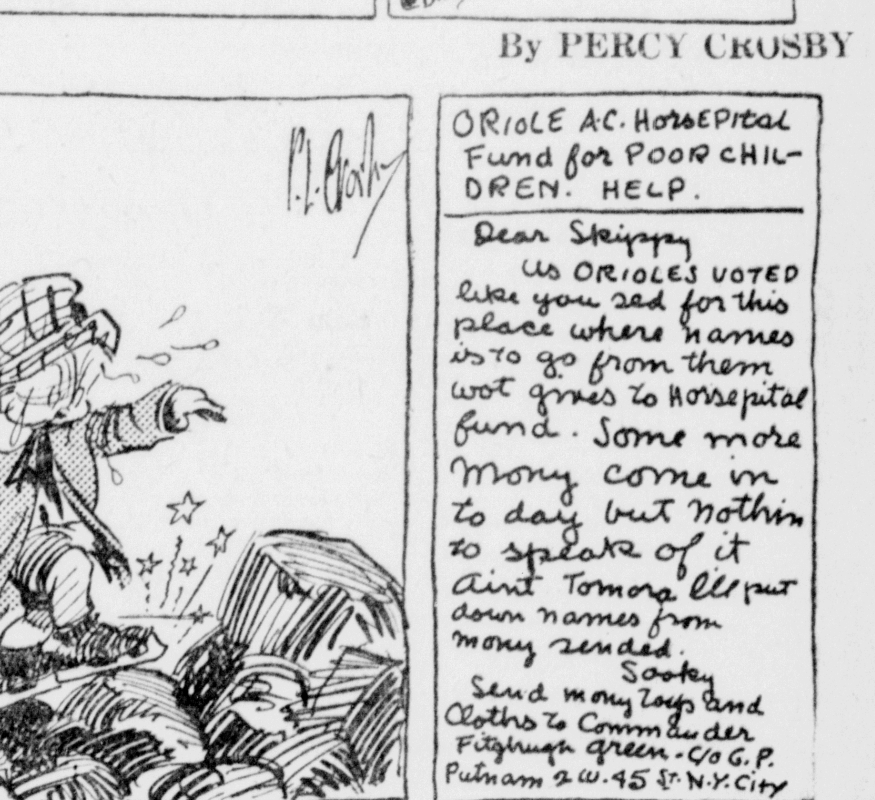 By PERCY CROSBY
P.L. Crosby
ORIOLE A.C. HorsEPital
Fund for POOR CHIL-
DREN. HELP.
Dear Skippy
us ORIOLES VOTED
like you sed for this
place where names
is to go from them
wot gives to Horsepital
fund. Some more
mony come in
to day but nothin
to speak of it
aint Tomora Ill put
down names from
mony sended.
Sooky
Send mony toys and
Cloths to Commander
Fitzhugh Green - C/o G.P.
Putnam 2 W. 45 St. N.Y. City